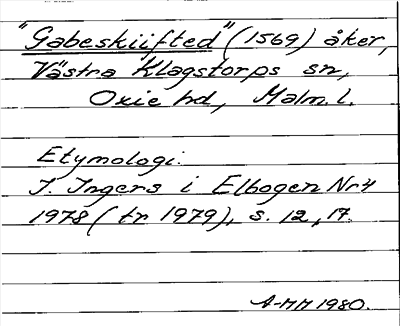 "Gabeskiifted" (1569) åker,
Västra Klagstorps sn,
Oxie hd, Malm. l.
Etymologi:
I. Ingers i Elbogen Nr 4
1978 (tr 1979), s. 12, 17.
A-MM 1980.